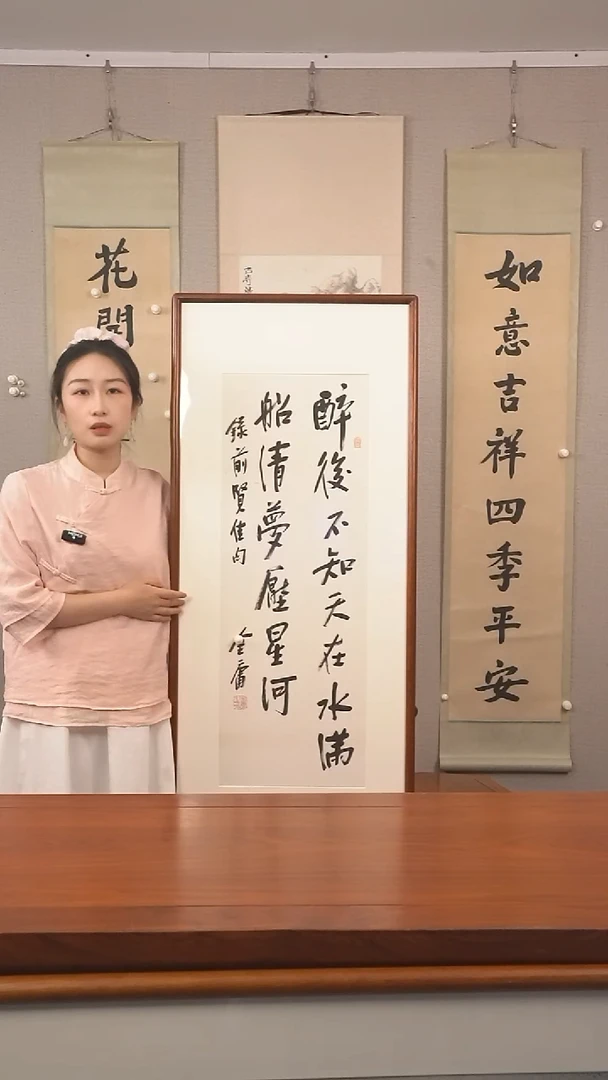 醉後不知天在水滿
船清夢壓星河
錄前賢佳句
金雷
如意吉祥四季平安
花開